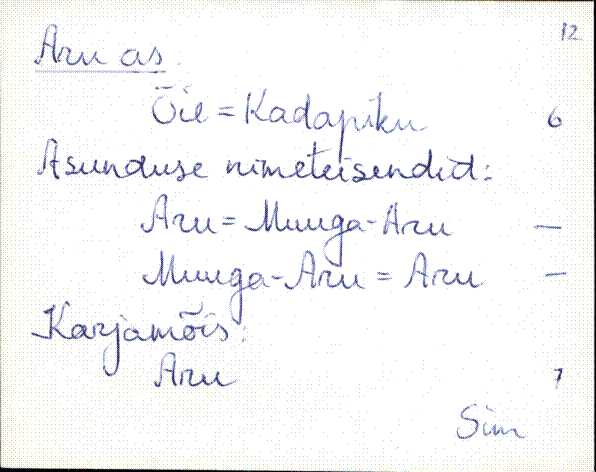 12
Aru as.
Õie = Kadapiku 6
Asunduse nimeteisendid:
Aru = Muuga-Aru —
Muuga-Aru = Aru —
Karjamõis:
Aru 7
Sim